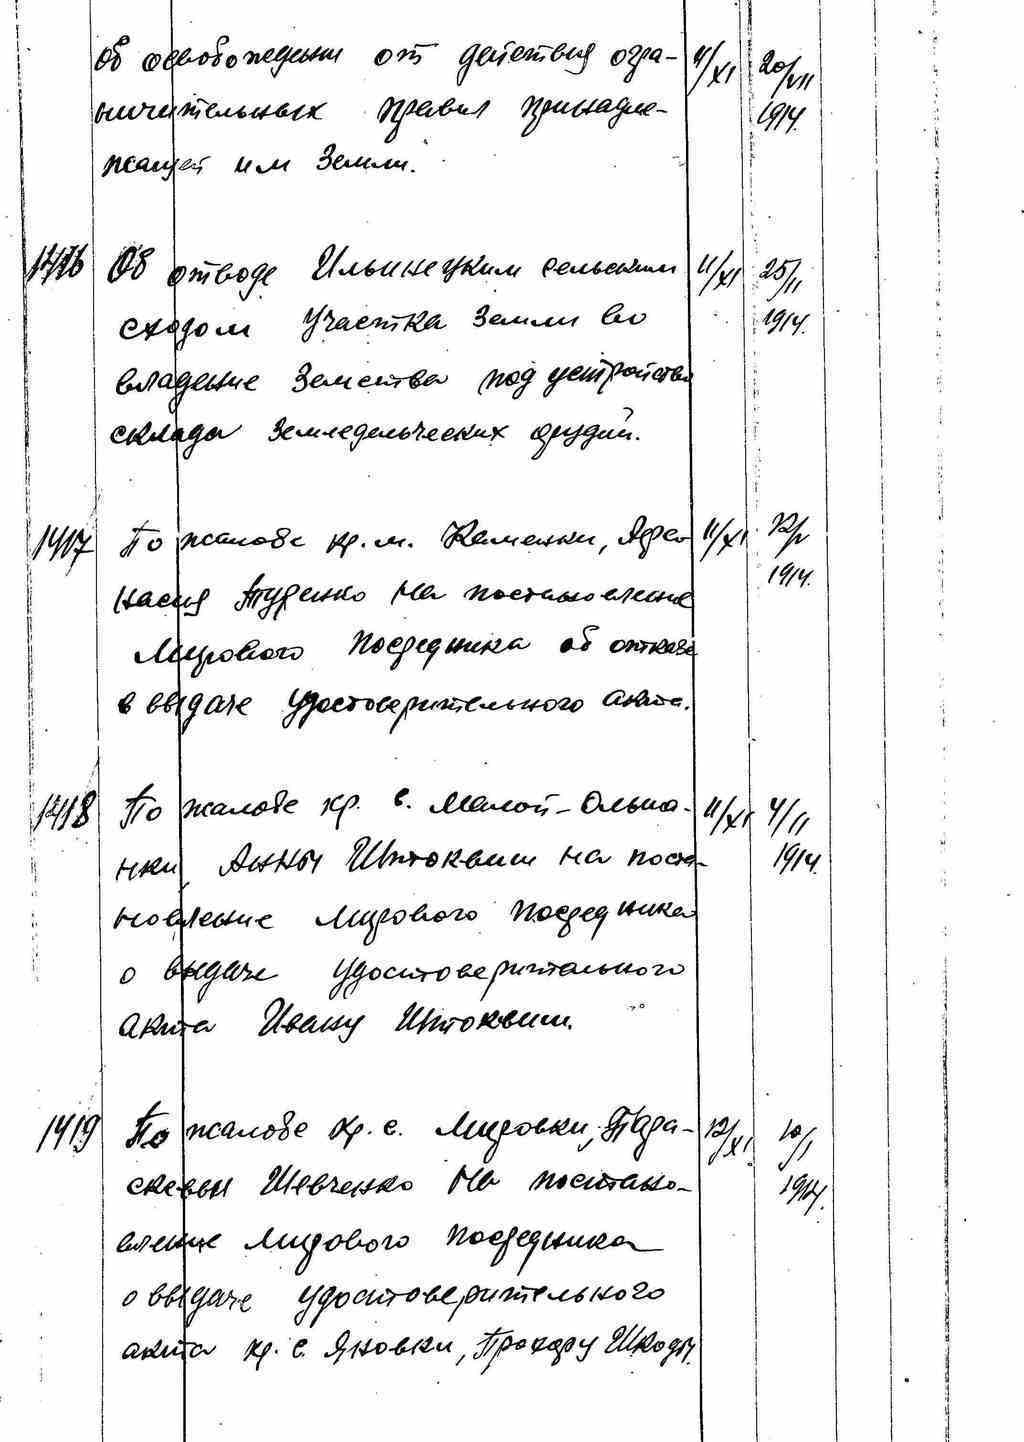 об освобождении от действия огра- 11/XI 20/VII
ничительных правил принадле- 1914.
жащей им Земли.
1416 Об отводе Ильинецким сельским 11/XI 25/II
сходом участка Земли во 1914.
владение Земства под устройство
склада Земледельческих орудий.
1417 По жалобе кр. м. Каменки, Афа- 11/XI
насия на постановление 1914.
Мирового Посредника об отказе
в выдаче удостоверительного акта.
1418 По жалобе кр. с. Малой-Ольша- 11/XI 4/II
нки, Анны Штоквиш на поста- 1914.
новление Мирового Посредника
о выдаче удостоверительного
акта Ивану Штоквиш.
1419 По жалобе кр. с. Мировки, Пара- 12/XI 10/I
скевы Шевченко на постано- 1914.
вление Мирового Посредника
о выдаче удостоверительного
акта кр. с. Яновки, Прохору Шкоды.